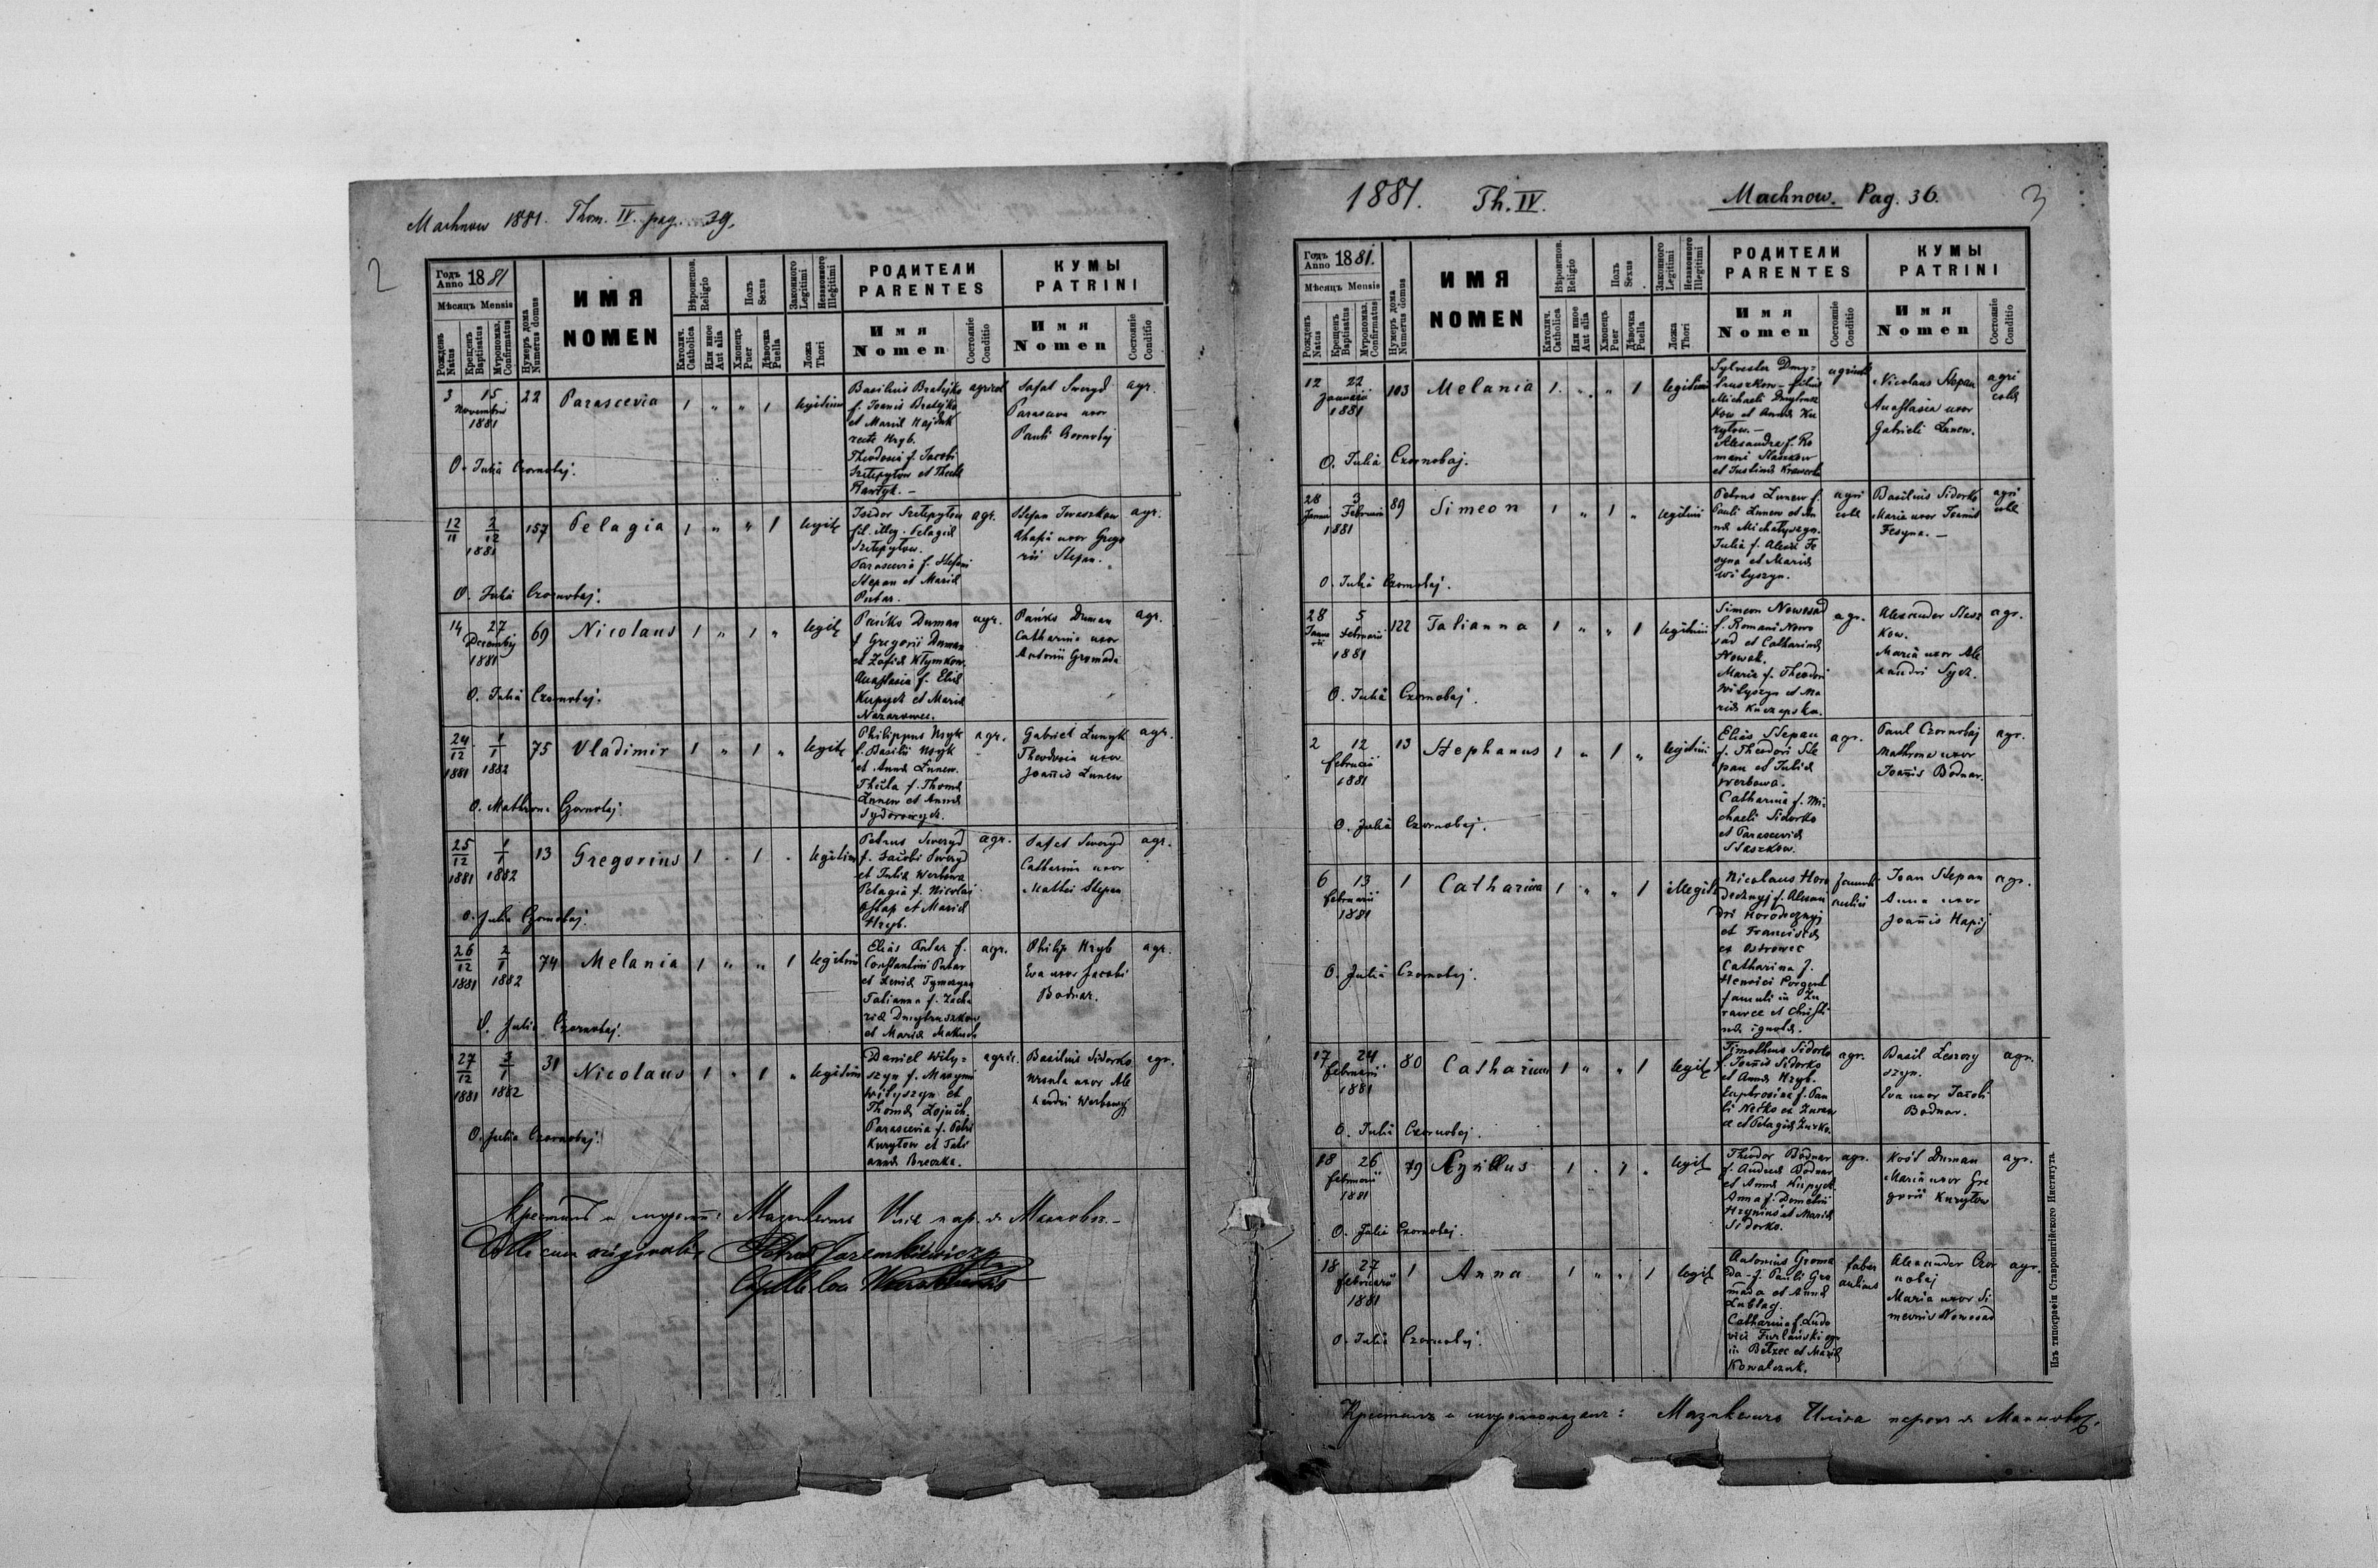 Machnow 1881. Thom. IV. pag. 39.
2
Годъ Anno 1881
Мѣсяцъ Mensis
Рожденъ Natus
Крещенъ Baptisatus
Мѵропомаз. Confirmatus
Нумеръ дома Numerus domus
ИМЯ
NOMEN
Вѣроиспов. Religio
Католич. Catholica
Или иное Aut alia
Полъ Sexus
Хлопецъ Puer
Дѣвочка Puella
Законного Legitimi
Незаконного Illegitimi
Ложа Thori
РОДИТЕЛИ
PARENTES
Имя
Nomen
Состояніе Conditio
КУМЫ
PATRINI
Имя
Nomen
Состояніе Conditio
3 15 Novembris 1881 22 Parascevia 1 " " 1 legitimi
Basilius Bratejko
f. Joanis Bratejko
et Mariä Hajduk
recte Hryb.
Theodosia f. Jacobi
Szetepytow et Theclä
agricol
Josafat Sweryd
Parasceva uxor
Pauli Czornobaj
agr.
O. Julia Czornobaj.
12/11 2/12 1881 157 Pelagia 1 " " 1 legit
Isidor Szetepytow
fil. illeg. Pelagiä
Szetepytow.
Parascevia f. Stefani
Stepan et Mariä
Putar.
agr.
Stefan Iwaszkow
Ahafia uxor Grego
rii Stepan.
agr.
O. Julia Czornobaj.
14 27 Decembris 1881 69 Nicolaus 1 " 1 " legit
Pańko Duman
f Gregorii Duman
et Zofiä Kłymkow.
Anastasia f. Eliä
Kupycz et Mariä
Nazarowec.
agr.
Pańko Duman
Catharina uxor
Antonii Gromada
agr.
O. Julia Czornobaj.
24/12 1881 1/1 1882 75 Vladimir 1 " 1 " legit
Philippus Usyk
f. Basilii Usyk
et Annä Łunew.
Thecla f. Thomä
Łunew et Annä
Sydorowycz.
agr.
Gabriel Łunyk
Theodosia uxor
Joannis Łunew
agr.
O. Mathrona Czornobaj
25/12 1881 1/1 1882 13 Gregorius 1 . 1 . legitimi
Petrus Sweryd
f. Jacobi Sweryd
et Juliä Werbowa
Pelagia f. Nicolai
Ostap et Mariä
Hryb.
agr.
Josafat Sweryd
Catharina uxor
Mathei Stepan
agr.
O. Julia Czornobaj.
26/12 1881 2/1 1882 74 Melania 1 " " 1 legitimi
Elias Putar f.
Constantini Putar
et Xeniä Tymczyna
Tatianna f. Zacha
riä Dmytruszkow
et Mariä
agr.
Philip Hryb
Eva uxor Jacobi
Bodnar.
agr.
O. Julia Czornobaj.
27/12 1881 3/1 1882 31 Nicolaus 1 " 1 " legitimi
Daniel Wily=
szyn f. Maxymi
Wilyszyn et
Thomä
Parascevia f. Petri
Kuryłow et Tati
annä Breczka.
agric.
Basilius Sidorko
Ursula uxor Ale
xandri Werbowyj
agr.
O. Julia Czornobaj.
Крестилъ и мѵропом:
Coll. cum originale
1881. Th. IV. Machnow. Pag. 36.
3
Годъ Anno 1881.
Мѣсяцъ Mensis
Рожденъ Natus
Крещенъ Baptisatus
Мѵропомаз. Confirmatus
Нумеръ дома Numerus domus
ИМЯ
NOMEN
Вѣроиспов. Religio
Католич. Catholica
Или иное Aut alia
Полъ Sexus
Хлопецъ Puer
Дѣвочка Puella
Законного Legitimi
Незаконного Illegitimi
Ложа Thori
РОДИТЕЛИ
PARENTES
Имя
Nomen
Состояніе Conditio
КУМЫ
PATRINI
Имя
Nomen
Состояніе Conditio
12 22 Januarii 1881 103 Melania 1. " " 1 legitimi
Sylvester Dmy=
truszkow - filius
Michaeli Dmytrusz
kow et Annä Ku
ryłow. -
Alexandra f. Ro
mani Staszkow
et Justinä
agricolä
Nicolaus Stepan
Anastasia uxor
Gabrieli Łunew.
agri
colä
O. Julia Czornobaj.
28 Januar 3 Februarii 1881 89 Simeon 1 " 1 " legitimi
Petrus Łunew f.
Pauli Łunew et An
nä Michałyszyn.
Julia f. Alexii Fe
syna et Mariä
Wilyszyn.
agri
colä
Basilius Sidorko
Maria uxor Joannis
Fesyna. -
agri
colä
O. Julia Czornobaj.
28 Janua rii 5 Februarii 1881 122 Tatianna 1 " " 1 legitimi
Simeon Nowosad
f. Romani Nowo
sad et Catharinä
Nowak.
Maria f. Theodori
Wilyszyn et Ma
riä
agr.
Alexander Stasz
kow.
Maria uxor Ale
xandri Sycz.
agr.
O. Julia Czornobaj.
2 12 februarii 1881 13 Stephanus 1 " 1 " legitimi
Elias Stepan
f. Theodori Ste
pan et Juliä
Werbowa.
Catharina f. Mi
chaeli Sidorko
et Parasceviä
Staszkow.
agr.
Paul Czornobaj
Mathrona uxor
Joannis Bodnar.
agr.
O. Julia Czornobaj.
6 13 februarii 1881 1 Catharina 1 " " 1 illegit
Nicolaus Horo
decznyj f. Alexan
dri Horodecznyj
et Franciscä
ex Ostrowec
Catharina f.
Henrici
famuli in Żu
rawce et Christi
nä ignotä.
famulus
aulici
Joan Stepan
Anna uxor
Joannis Hapij
agr.
O. Julia Czornobaj.
17 24 februarii 1881 80 Catharina 1 " " 1 legit
Timotheus Sidorko
f. Joannis Sidorko
et Annä Hryb.
Euphrosina f. Pau
li
agr.
Basil
szyn.
Eva uxor Jacobi
Bodnar.
agr.
O. Julia Czornobaj.
18 26 februarii 1881 79 Cyrillus 1 . 1 . legit
Theodor Bodnar
f. Andreä Bodnar
et Annä Kupycz.
Anna f. Demetrii
et Mariä
Sidorko.
agr.
Kość Duman
Maria uxor Gre
gorii Kuryłow
agr.
O. Julia Czornobaj.
18 27 februarii 1881 1 Anna 1 " " 1 legit
Antonius Groma
da - f. Pauli Gro
mada et Annä
Catharina f. Ludo
vici Furlański
in Bełzec et Mariä
Kowalczuk.
faber
aulicus
Alexander Czor
nobaj
Maria uxor Si
meonis Nowosad
agr.
O. Julia Czornobaj.
Крестилъ и мѵропомазалъ:
Изъ типографіи Ставропигійского Института.